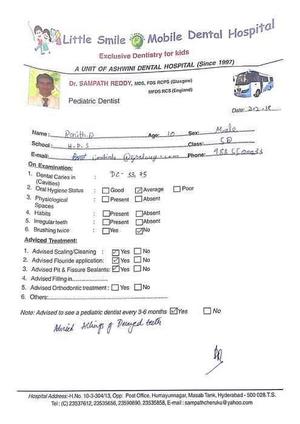 Little Smile Mobile Dental Hospital
Exclusive Dentistry for kids
A UNIT OF ASHWINI DENTAL HOSPITAL (Since 1997)
Dr. SAMPATH REDDY, MDS, FDS RCPS (Glasgow)
MFDS RCS (England)
Pediatric Dentist
Date: 2-2-18
Name: Age: 10 Sex: Male
School: H.P.S Class: 5D
E-mail: Phone:
On Examination:
1. Dental Caries in (Cavities) DC - 55, 75
2. Oral Hygiene Status : Good Average Poor
3. Physiological Spaces : Present Absent
4. Habits : Present Absent
5. Irregular teeth : Present Absent
6. Brushing twice : Yes No
Adviced Treatment:
1. Advised Scaling/Cleaning : Yes No
2. Advised Flouride application: Yes No
3. Advised Pit & Fissure Sealants: Yes No
4. Advised Filling in
5. Advised Orthodontic treatment : Yes No
6. Others:
Note: Advised to see a pediatric dentist every 3-6 months Yes No
Advised fillings of Decayed teeth
Hospital Address:-H.No. 10-3-304/13, Opp: Post Office, Humayunnagar, Masab Tank, Hyderabad - 500 028.T.S.
Tel: (C) 23537612, 23535656, 23590690, 23535858, E-mail : sampathcheruku@yahoo.com